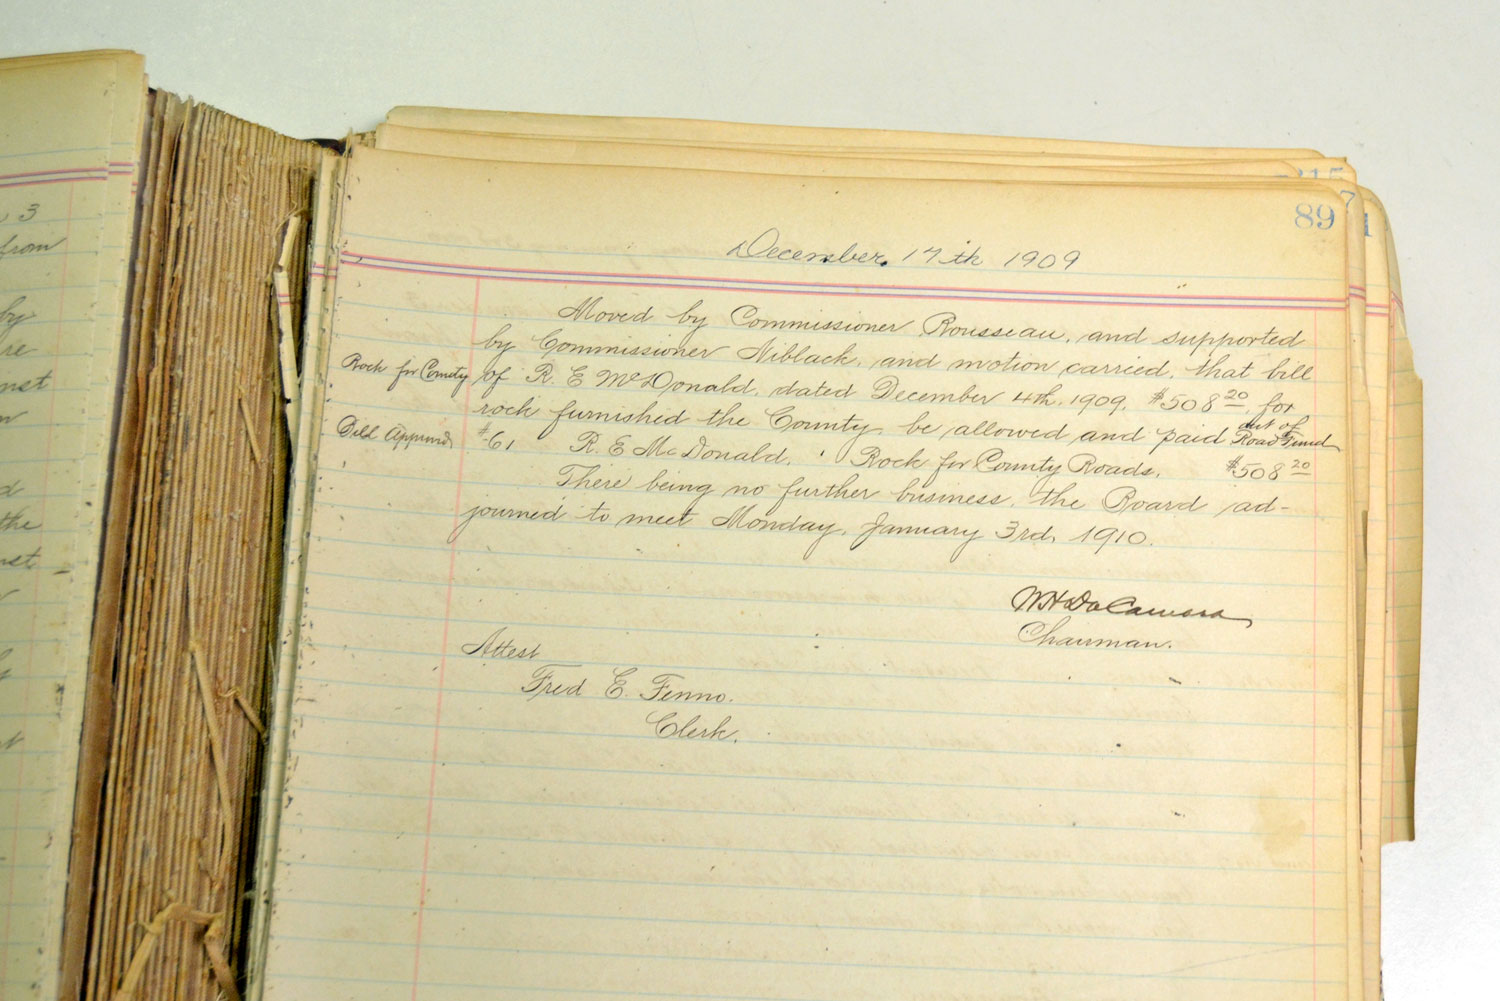 3
from
by
re
nst
d
the
nst
215
7
1
89
December 17th 1909
Moved by Commissioner Rousseau, and supported
by Commissioner Niblack, and motion carried, that bill
Rock for County of R. E McDonald, dated December 4th, 1909, $508 20 for
rock furnished the County be allowed and paid out of Road Fund
Bill Approved #61 R. E McDonald, Rock for County Roads, $508 20
There being no further business, the Board ad-
journed to meet Monday, January 3rd, 1910.
W H Da Camara
Chairman.
Attest
Fred E. Fenno.
Clerk.